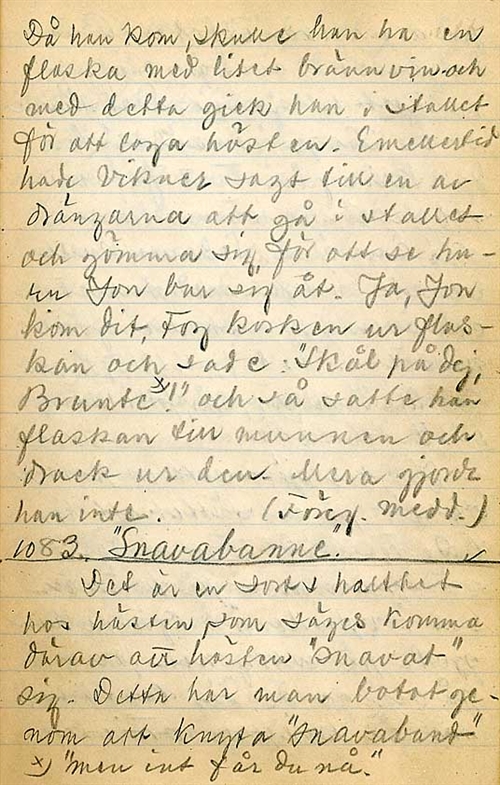 Då han kom, skulle han ha en
flaska med litet brännvin och
med detta gick han i stallet
för att laga hästen. Emellertid
hade Vikner sagt till en av
drängarna att gå i stallet
och gömma sig för att se hu-
ru Jon bar sig åt. Ja, Jon
kom dit, tog korken ur flas-
kan och sade: "Skål på dej,
Brunte x)!" och så satte han
flaskan till munnen och
drack ur den. Mera gjorde
han inte. (Föreg. medd.)
1083. "Snavabanne".
Det är en sorts halthet
hos hästen, som säges komma
därav att hästen "snavat"
sig. Detta har man botat ge-
nom att knyta "Snavaband"
x) "men int får du nå."